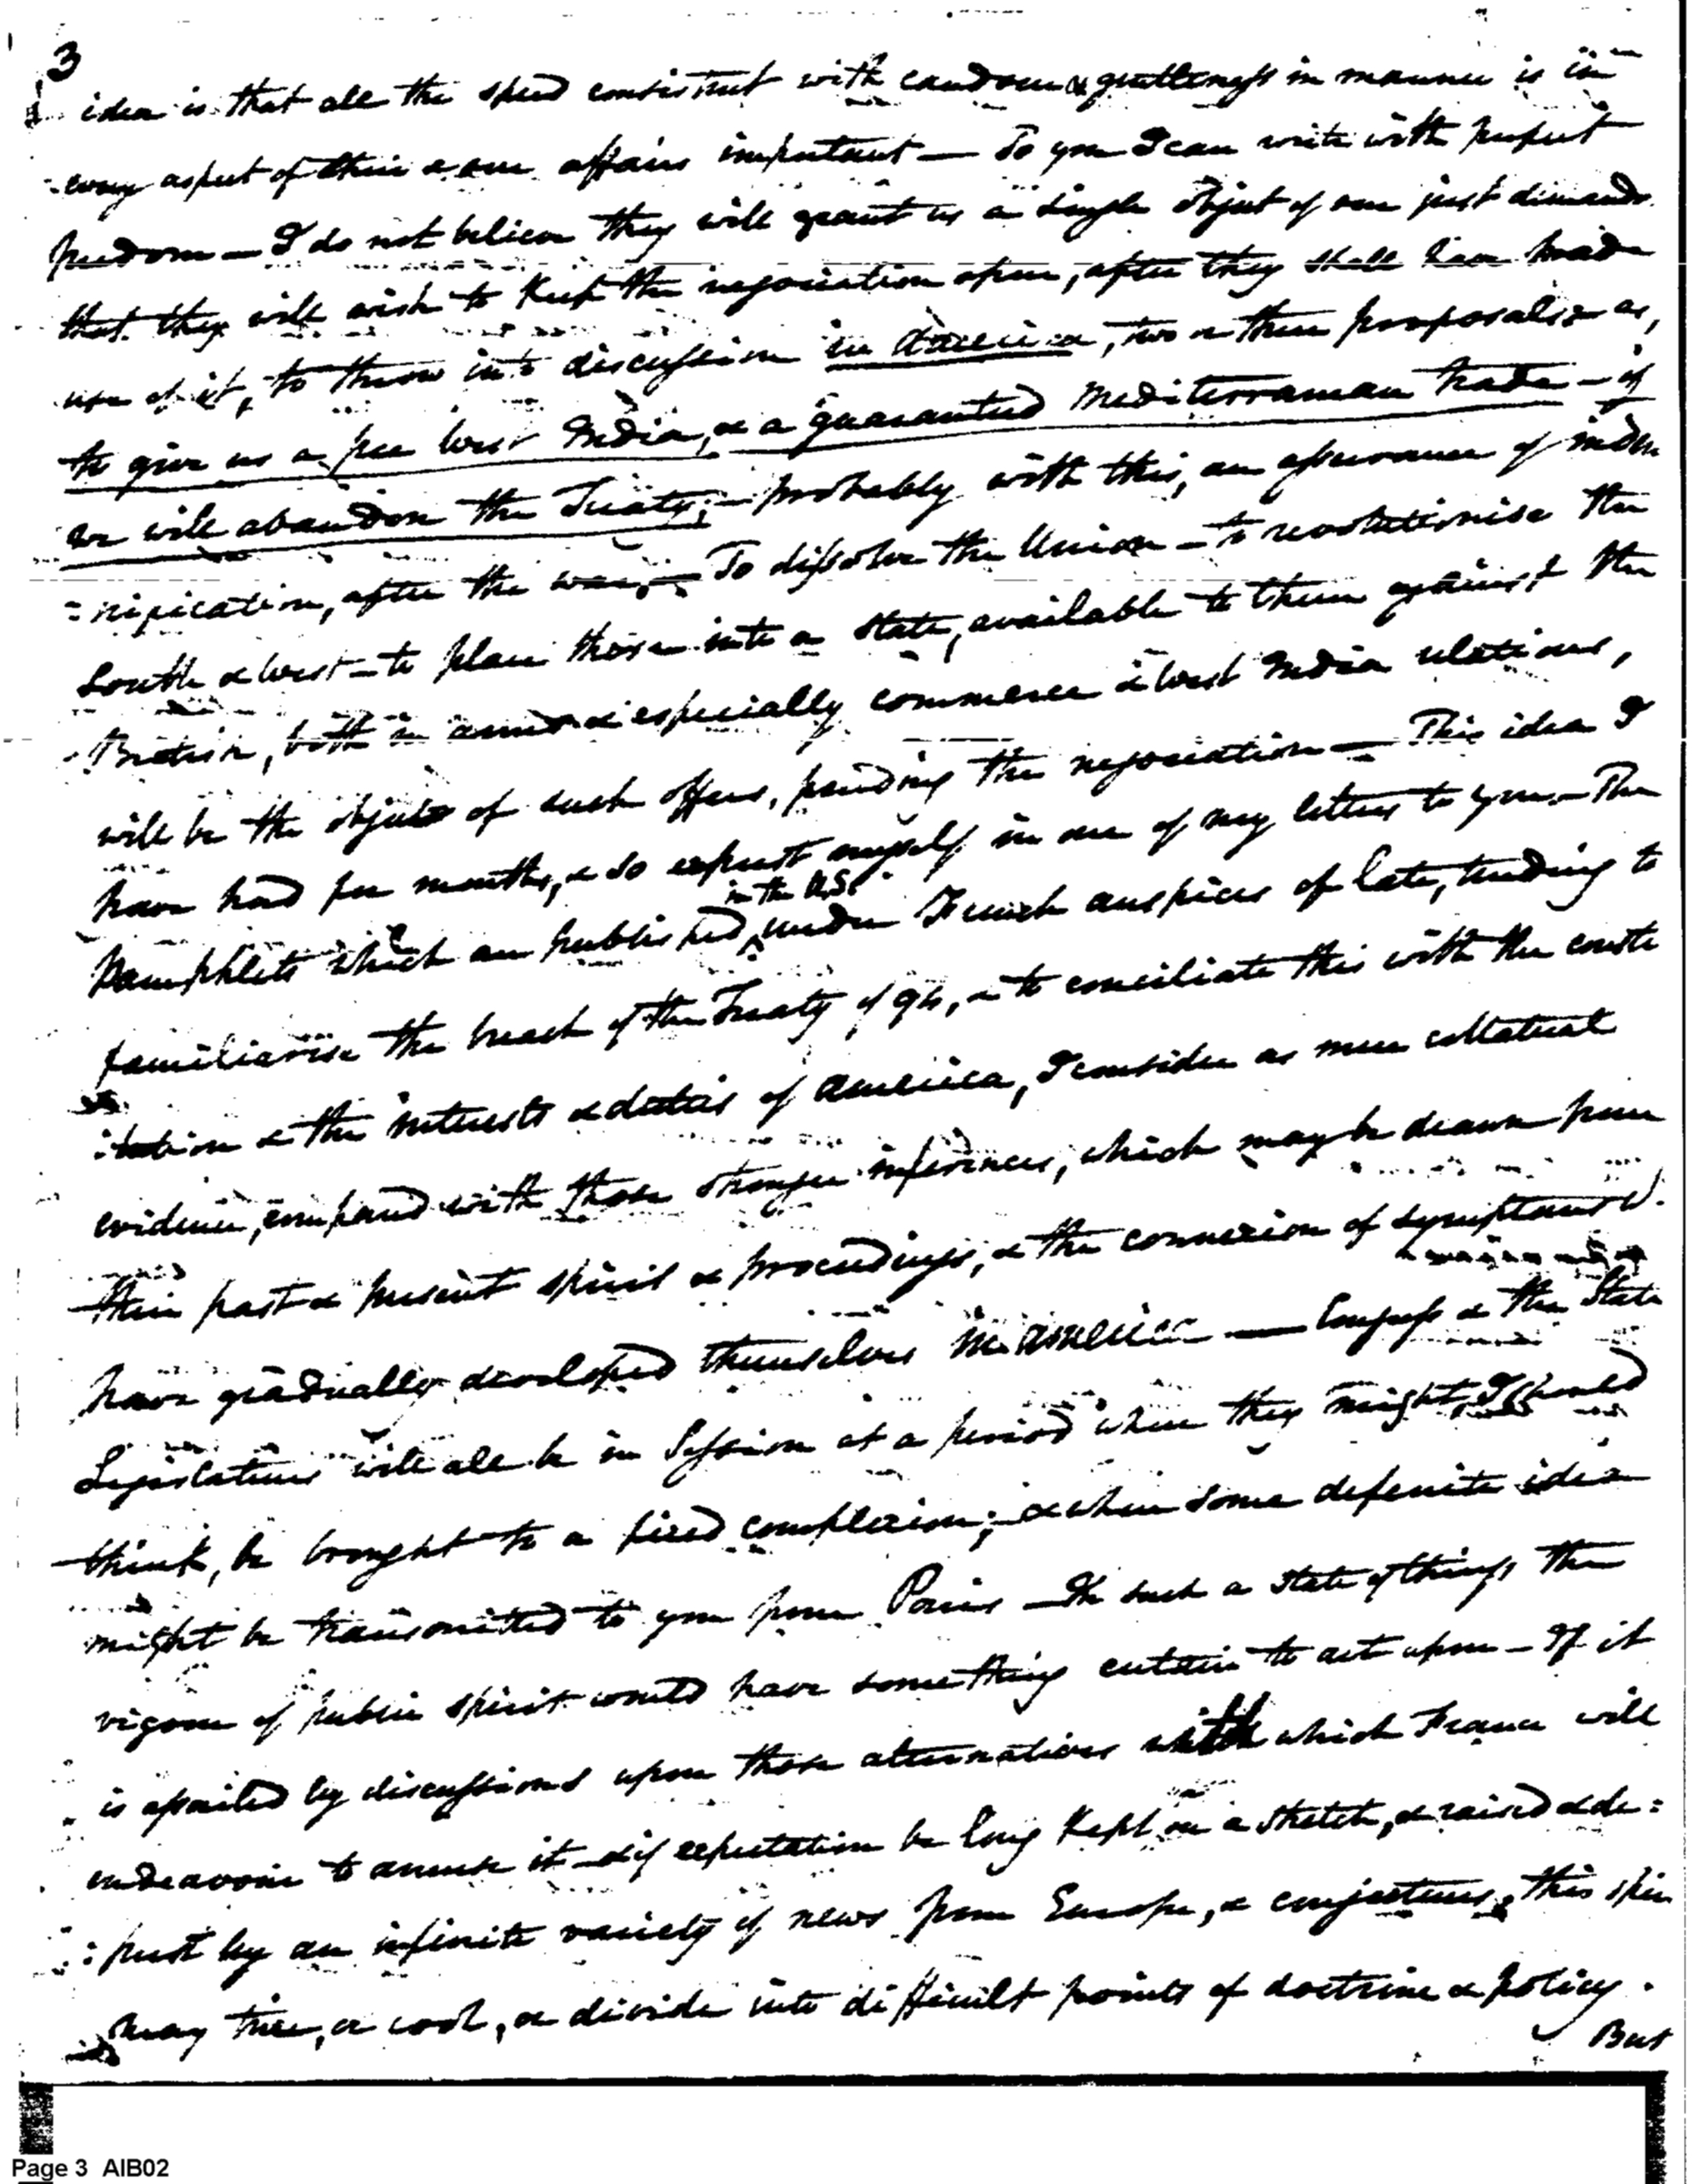 3
idea is that all the speed consistent with candour & gentleness in manner is in
every aspect of their & our affairs important — To you I can write with perfect
freedom — I do not believe they will grant us a single object of our just demands.
that they will wish to keep the negociation open, after they shall have made
use of it, to throw into discussion in America, two or three proposals: as,
to give us a free West India, or a guaranteed Mediterranean trade — if
we will abandon the Treaty; — probably with this, an assurance of indem
=nification, after the war, — To dissolve the Union — to revolutionise the
South & West — to place those into a state, available to them against the
British, both in arms & especially commerce & West India relations,
will be the objects of such offers, pending the negociation — This idea I
have had for months, & so exprest myself in one of my letters to you. — The
in the U.S.
Pamphlets which are published, under French auspices of late, tending to
familiarise the breach of the Treaty of 94, & to conciliate this with the consti
:tution & the interests & duties of America, I consider as mere collateral
evidence, compared with those stronger inferences, which may be drawn from
their past & present spirit & proceedings, & the connexion of symptoms wh.
have gradually developed themselves in America — Congress & the State
Legislatures will all be in Session at a period when they might, I should
think, be brought to a fixed complexion; & when some definite idea
might be transmitted to you from Paris — In such a state of things the
vigour of public spirit would have something certain to act upon — If it
is assailed by discussions upon those alternatives with which France will
endeavour to amuse it — & if expectation be long kept on a stretch, & raised & de:
:prest by an infinite variety of news from Europe, & conjectures, this spir
may tire, or cool, or divide into difficult points of doctrine & policy.
But
Page 3 AIB02